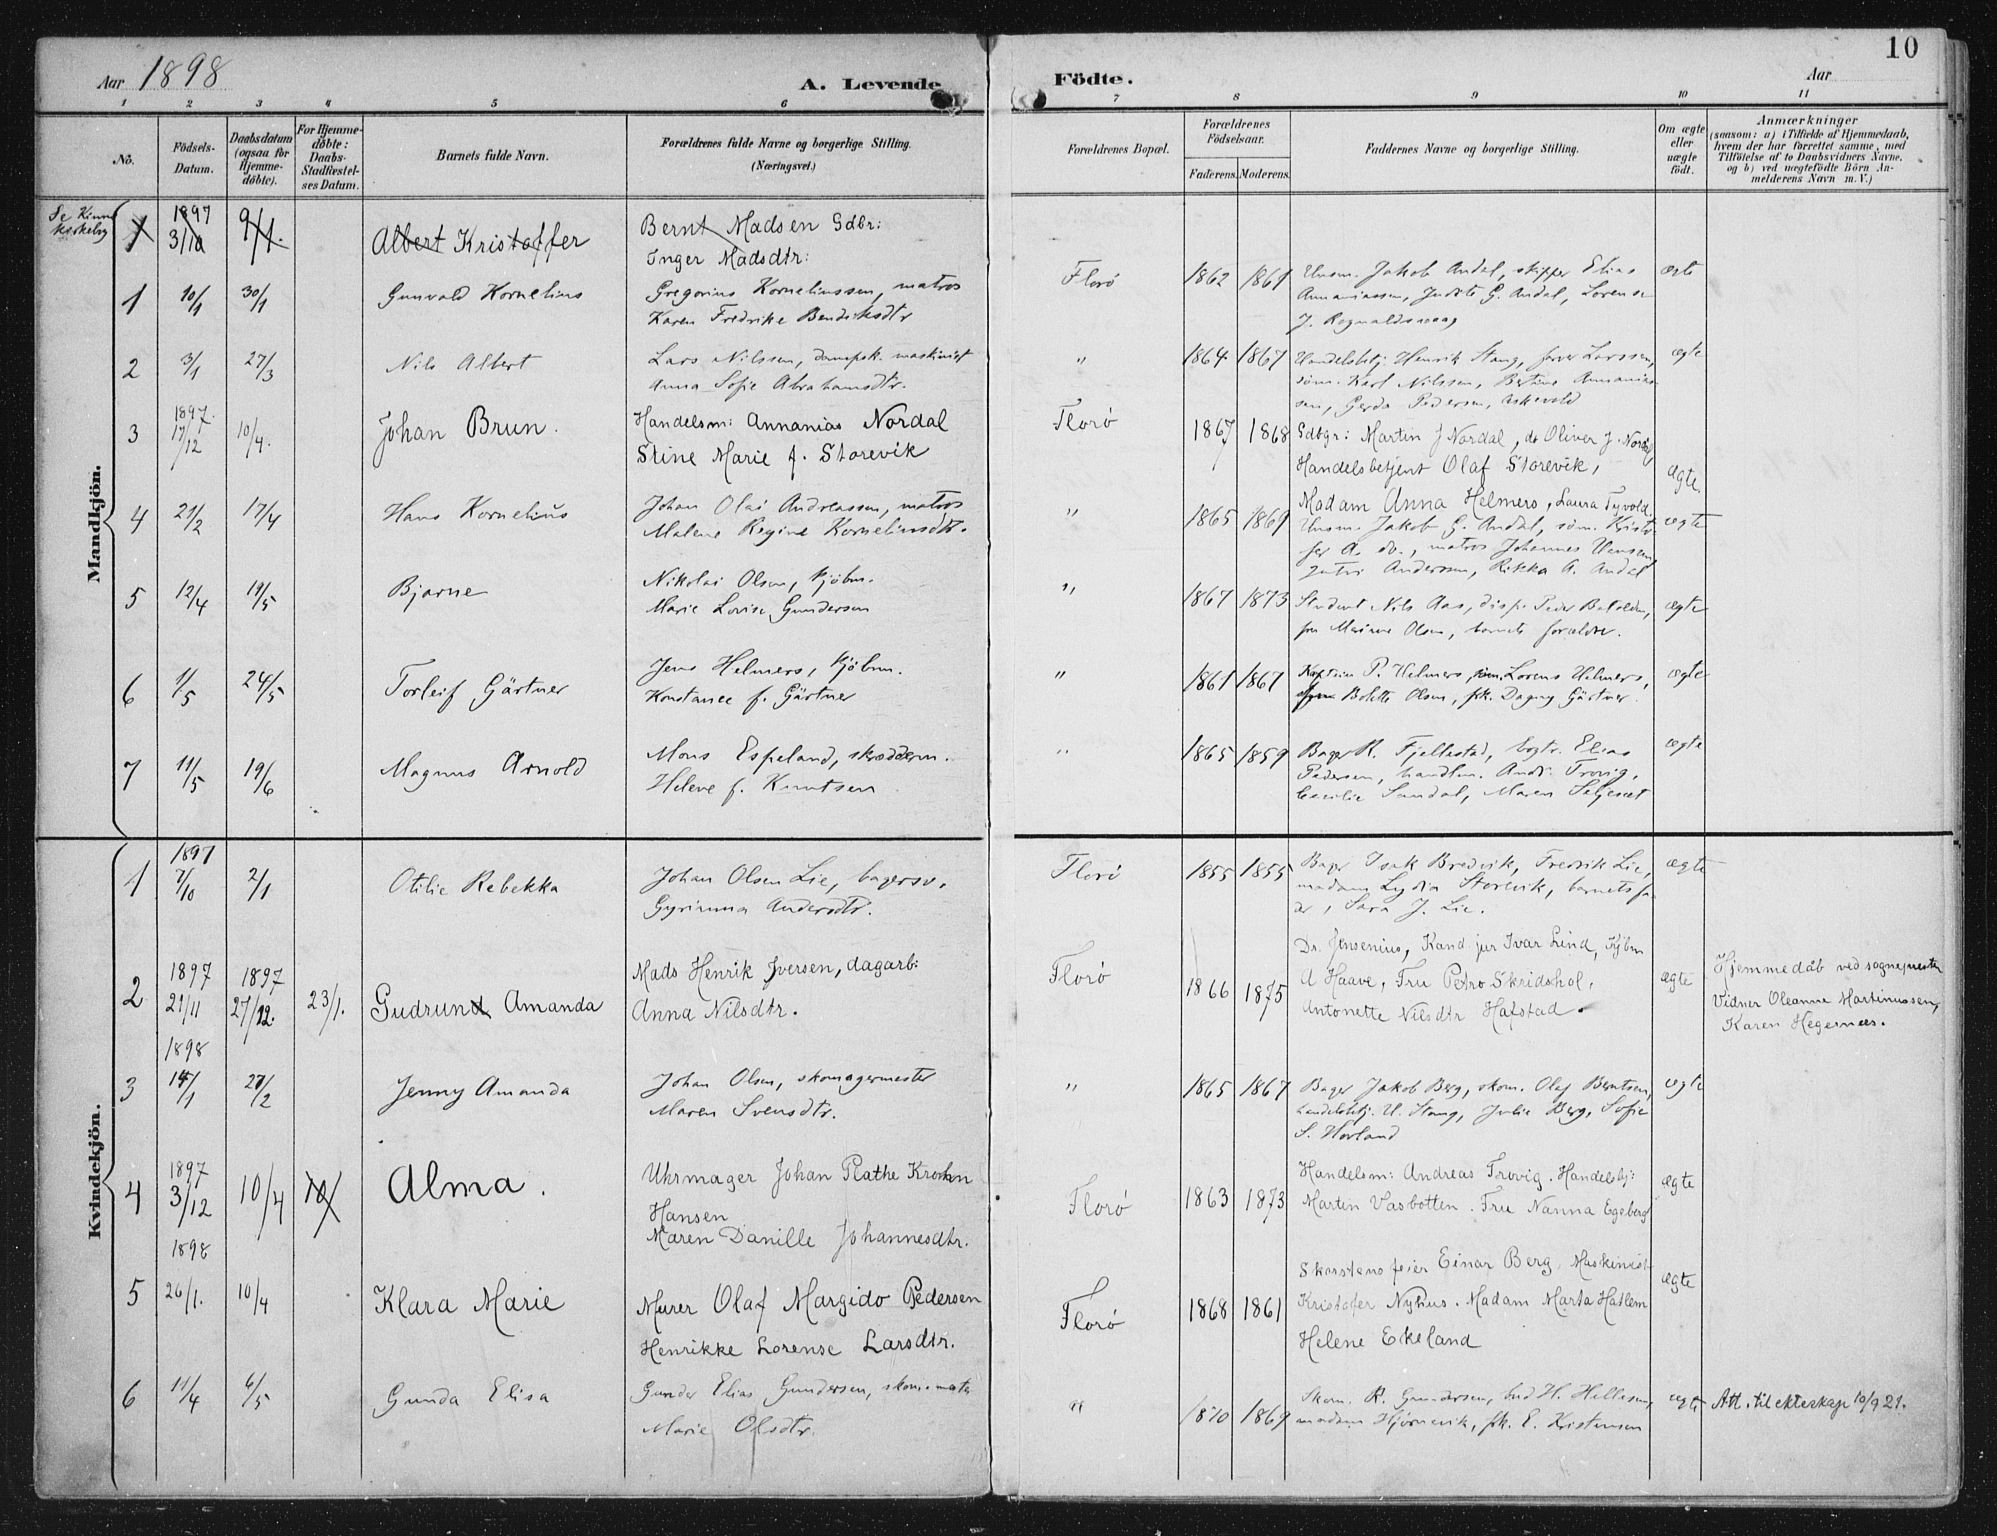 10
Aar 1898
A. Levende
Födte.
Aar
1 2 3 4 5 6 7 8 9 10 11
No.
Födsels-Datum.
Daabsdatum (ogsaa for Hjemme-döbte).
For Hjemme-döbte: Daabs-Stadfæstel-ses Datum.
Barnets fulde Navn.
Forældrenes fulde Navne og borgerlige Stilling.
(Næringsvei.)
Forældrenes Bopæl.
Forældrenes Födselsaar.
Faderens. Moderens.
Faddernes Navne og borgerlige Stilling.
Om ægte eller uægte födt.
Anmærkninger
(saasom: a) i Tilfælde af Hjemmedaab, hvem der har forrettet samme, med Tilföielse af to Daabsvidners Navne, og b) ved uægtefödte Börn An-melderens Navn m. V.)
Mandkjön.
Se Kinn
1 1897 3/10 9/1. Albert Kristoffer Bernt Madsen Gdbr:
Inger Madsdtr:
1 10/1 30/1 Gunvald Kornelius Gregorius Korneliussen, matros Florø 1862 1861 Jakob Andal, skipper Elias
Karen Fredrikke Bendiksdtr Annaniassen, G. Andal, Lorense
2 3/1 27/3 Nils Albert Lars Nilssen, dampsk. maskinist " 1864 1867 Handelsbtj. Henrik Stang, Larssen, ægte
Anna Sofie Abrahamsdtr. Karl Nilssen,
Gerda Pedersen, Askevold
3 1897. 17/12 10/4. Johan Brun. Handelsm: Annanias Nordal Florø 1867 1868 Gdbgr: Martin J Nordal, do Oliver J. Nordal
Stine Marie f. Storevik Handelsbetjent Olaf Storevik, ægte.
Madam Anna Helmers, Laura Tyvold
4 21/2 17/4 Hans Kornelius Johan Olai Andreassen, matros " 1865 1869 Jakob G. Andal, ægte
Malene Regine Korneliusdtr. matros Johannes Hansen
Andersen, Rikka A. Andal
5 12/4 19/5 Bjarne Nikolai Olsen, kjøbm. " 1867 1873 Student Nils Aas, disp. Peder Batalden, ægte
Marie Lovise Gundersen fru Olsen, barnets forældre.
6 1/5 24/5 Torleif Gärtner Jens Helmers, kjøbm. " 1861 1867 P. Helmers, Lorens Helmers, ægte
Konstance f. Gärtner Bolette Olsen, frk. Dagny Gärtner.
7 11/5 19/6 Magnus Arnold Mons Espeland, skrædderm. " 1865 1859 Bager R. Fjellestad, bogtr. Elias ægte
Helene f. Knutsen Pedersen, handlm. Andr. Trovig,
Cecilie Sandal, Maren Seljeset
Kvindekjön.
1 1897 7/10 2/1 Otilie Rebekka Johan Olsen Lie, bagersv. Florø 1855 1855 Bager Isak Bredvik, Fredrik Lie, ægte
Andersdtr. madam Lydia Storevik, barnets fa-
der, Sara J. Lie.
2 1897 21/11 1897 27/12. 23/1. Gudrund Amanda Mads Henrik Iversen, dagarb: Florø 1866 1875 Dr. Jensenius, Kand. jur Ivar Lind, Kjbm ægte Hjemmedåb ved sogneprester
Anna Nilsdtr. A Haave, Fru Petra Skridshol, Vidner Oleanne Martinussen,
Antonette Nilsdtr Hafstad. Karen Hegernæs.
3 1898 14/1 27/2 Jenny Amanda Johan Olsen, skomagermester " 1865 1867 Bager Jakob Berg, skom. Olaf Berntsen, ægte
Maren Svensdtr. handelsbtj. H. Stang, Julie Berg, Sofie
S. Horland
4 1897 3/12 10/4 10/ Alma. Uhrmager Johan Plathe Krohn Florø 1863 1873 Handelsm: Andreas Trovig. Handelsbj: ægte
Hansen Martin Vasbotten. Fru Nanna Egeberg
Maren Danille Johannesdtr.
5 1898 26/1. 10/4 Klara Marie Murer Olaf Margido Pedersen Florø 1868 1861 Skorstensfeier Einar Berg, Maskinist ægte
Henrikke Lorense Larsdtr. Kristofer Nyhus. Madam Marta Hatlem
Helene Ekeland
6 11/4 6/5 Gunda Elisa Gunder Elias Gundersen, " 1870 1869 Skom. R. Gundersen, H. Hellesen, ægte Att. til ekteskap 10/9 21.
Marie Olsdtr. madam Hjørnevik, frk. E. Kristensen